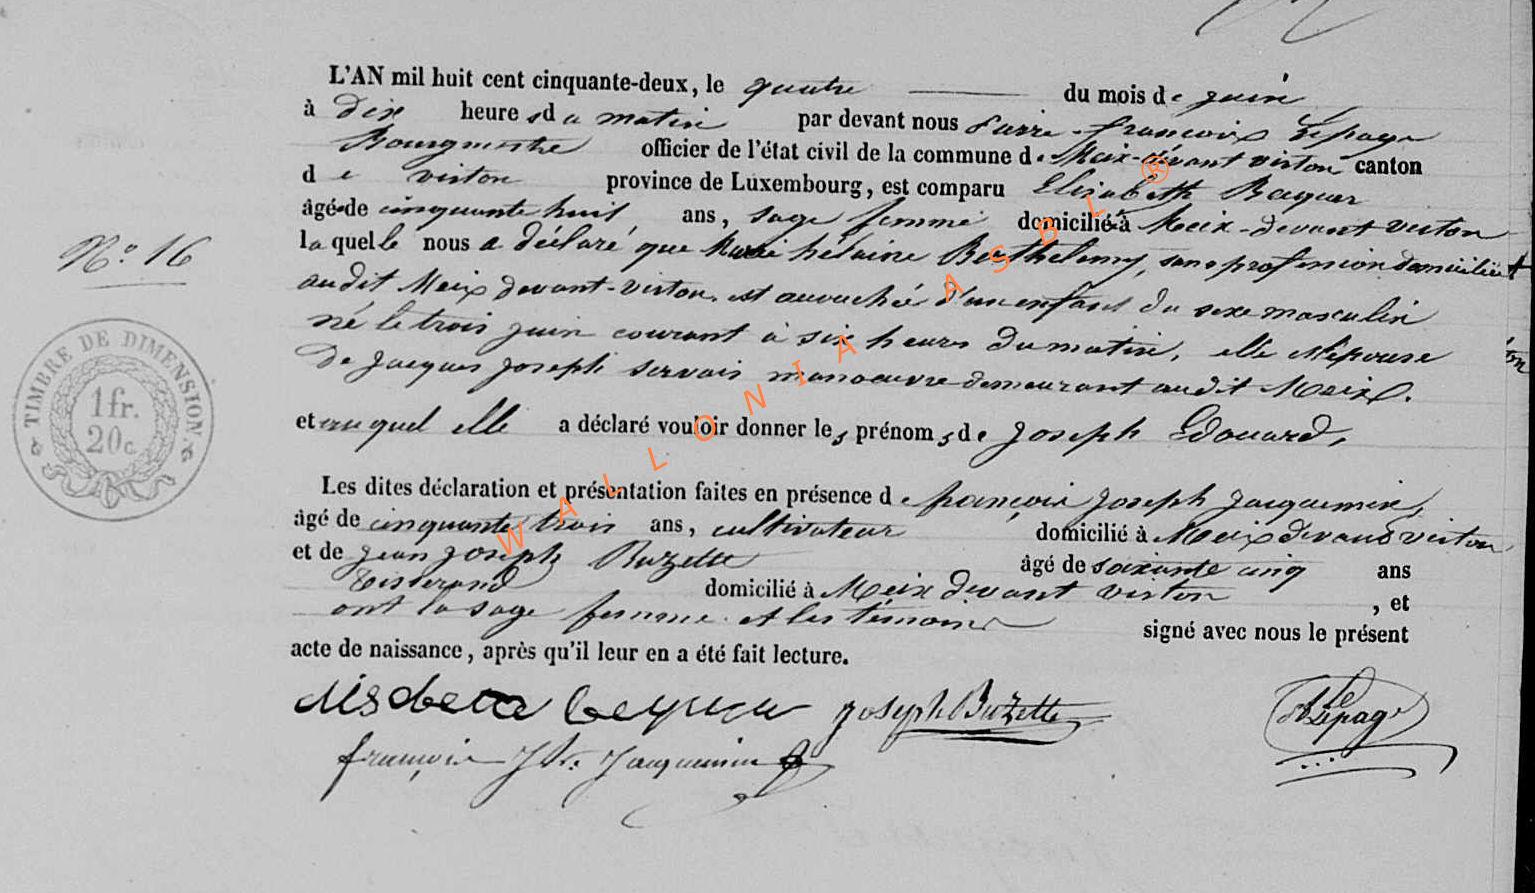 L'AN mil huit cent cinquante-deux, le quatre du mois de juin
à dix heures du matin par devant nous Pierre-françois Lepage
Bourgmestre officier de l'état civil de la commune de Meix-devant virton canton
de virton province de Luxembourg, est comparu Elisabeth Bequer
âgé de cinquante huit ans, sage femme domicilié à Meix-devant virton
laquelle nous a déclaré que Marie hélaine Barthelemy, sans profession domiciliée
audit Meix devant-virton, est accouchée d'un enfant du sexe masculin
né le trois juin courant à six heures du matin, elle est épouse
de Jacques joseph servais manoeuvre demeurant audit Meix.
et auquel elle a déclaré vouloir donner les prénoms de joseph Edouard,
Les dites déclaration et présentation faites en présence de françois joseph jacquemin,
âgé de cinquante trois ans, cultivateur domicilié à Meix devant virton
et de jean joseph Buzette âgé de soixante cinq ans
tisserand domicilié à Meix devant virton, et
ont la sage femme et les témoins signé avec nous le présent
acte de naissance, après qu'il leur en a été fait lecture.
joseph Buzette Lepage
françois Jh. Jacquemin
No. 16
TIMBRE DE DIMENSION
1 fr.
20 c.
WALLONIA ASBL ®